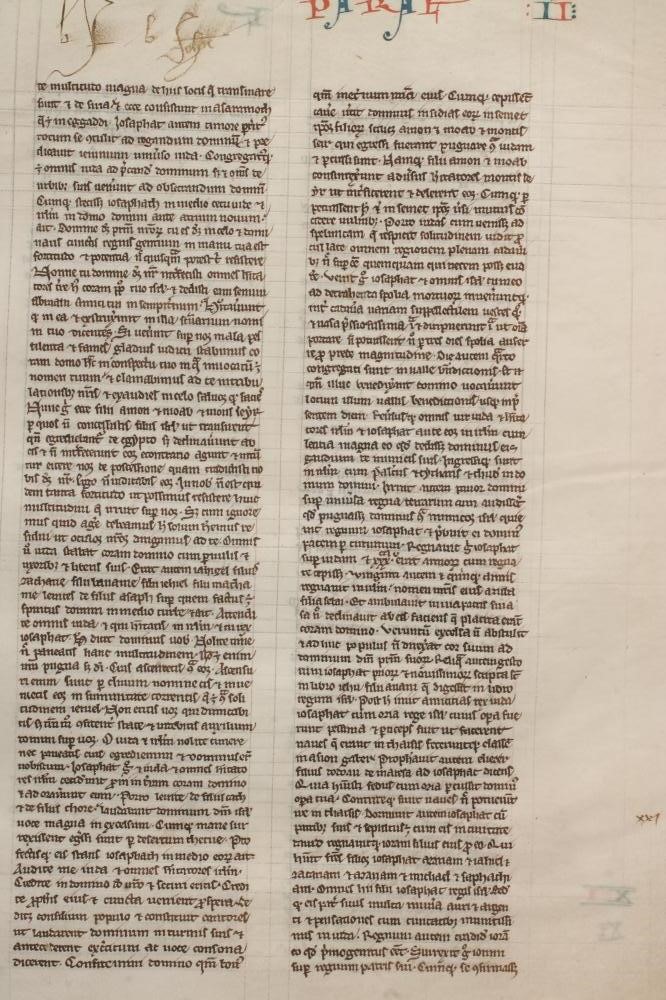 PARAL II
te multitudo magna de his locis q̄ trans mare
sunt & de siria & ecce consistunt in asasonthamar
q̄ ē in engaddi. Iosaphat autem timore
totum se ad rogandum dominū & pre
dicauit ieiunium uniuerso iuda. Congregatus
ē omnis iuda ad dominum & omēs de
urbibus suis uenerunt ad obsecrandum dominū.
Cumq̄ stetisset iosaphath in medio cetu iude &
irlm in domo domini ante atrium nouum.
ait. Domine dš prm̄ nror̄ tu es dš in celo & domi
naris cunctis regnis gentium in manu tua est
fortitudo & potentia n̄ quisquam potest t̄ resistere
Nonne tu domine dš nr̄
tores t̄re h̄ coram pp̄lo tuo isrl & dedisti eam semini
abraham amici tui in sempiternum.
q̄ in ea & in illa sc̄uarium nomini
in tuo dicentes. Si uenerint sup̄ nos mala
& fames gladius iudicii stabimus co
ram domo h̄ in conspectu tuo in q̄
nomen tuum & clamabimus ad te in tribu
lationibus nr̄is & exaudies
Nunc ḡ ecce filii amon & moab & mons seyr
p̄ quos n̄ concessisti filiis isrl ut transirent
qn̄ egrediebant̄ de egypto s̄ declinauerunt ab
eis & n̄ interfecerunt eos econtrario agunt &
eicere nos de possessione quam tradidisti no
bis dš nr̄. Ergo n̄ iudicabis eos. In nob̄ n̄ est
dem tanta fortitudo ut possimus resistere huic
multitudini q̄ irruit sup̄ nos. Sed cum ignore
mus quid agere debeamus h̄ solum habemus re
sidui ut oculos nr̄os dirigamus ad te. Omnis
ū iuda stabat coram domino cum paruulis &
uxoribus & liberis suis. Erat autem iahiel filius
zacharie filii banaie filii iehiel filii matha
nie leuites de filiis asaph sup̄ quem factus ē
spiritus domini in medio turbe & ait. Attendi
te omnis iuda & qui habitatis in irlm & tu rex
iosaphat. Hec dicit dominus uob. Nolite timere
n̄ paueatis hanc multitudinem. N̄ enim
ura pugna s̄ dei. Cras ascendetis q̄ eos. Ascensu
ri enim sunt p̄ cliuum nomine cis & inue
nietis eos in summitate torrentis q̄ ē q̄ soli
tudinem ieruel. Non eritis uos qui dimicabi
tis s̄ confidenter state & uidebitis auxilium
domini sup̄ uos. O iuda & irlm nolite timere
nec paueatis cras egrediemini & dominus erit
uobiscum. Iosaphat ḡ & iuda & omnes habitato
res irlm ceciderunt proni in terram coram domino
& adorauerunt eum. Porro leuite de filiis caath
& de filiis chore laudabant dominum dm̄ isrl
uoce magna in excelsum. Cumq̄ mane sur
rexissent egressi sunt p̄ desertum thecue. Pro
fectisq̄ eis stans iosaphath in medio eorum ait
Audite me iuda & omnes habitatores irlm.
Credite in domino do uro & securi eritis. Credi
te p̄phetis eius & cuncta uenient prospera. De
ditq̄ consilium populo & constituit cantores
ut laudarent dominum in turmis suis &
antecederent exercitum ac uoce consona
dicerent. Confitemini domino qm̄
qm̄ in eternum mīa eius. Cumq̄ cepissent
uertit dominus insidias eorum in semet
ipsos filiorum scilicet amon & moab & montis
seir qui egressi fuerant ut pugnarent q̄ iudam
& percussi sunt. Namq̄ filii amon & moab
consurrexerunt aduersus habitatores montis se
yr ut interficerent & delerent eos. Cumq̄
& in semet ipsos uersi mutuis con
cidere uulneribus. Porro iudas cum uenisset ad
speluncam q̄ respicit solitudinem uidit pro
cul late omnem regionem plenam cadaueri
bus n̄ sup̄ esse quemquam qui necem posset eua
dere. Venit ḡ iosaphat & omnis isrl cum eo
ad detrahenda spolia mortuorum inueneruntq̄
inter cadauera uariam suppellectilem uestes q̄
& uasa p̄ciosissima & diripuerunt ut omnia
portare n̄ possent n̄ per tres dies spolia auferre
p̄ prede magnitudine. Die autem quarto
congregati sunt in ualle benedictionis.
qm̄ illuc benedixerant domino uocauerunt
locum illum uallis benedictionis usq̄ in p̄
sentem diem. Reuersusq̄ omnis uir iuda & habita
tores irlm & iosaphat ante eos in irlm cum
letitia magna eo qd̄ dedisset dominus eis
gaudium de inimicis suis. Ingressiq̄ sunt
in irlm cum psalteriis & cytharis & tubis in do
mum domini. Irruit autem pauor domini
sup̄ uniuersa regna terrarum cum audissent
qd̄ pugnasset dominus q̄ inimicos isrl quie
uit regnum iosaphat & prebuit ei dominus
pacem p̄ circuitum. Regnauit ḡ iosaphat
sup̄ iudam & xxx erat annorum cum regna
re cepisset. Viginti autem & quinq̄ annis
regnauit in irlm. nomen matris eius azuba
filia selai. Et ambulauit in uia patris sui a
sa n̄ declinauit ab ea faciens q̄ placita erant
coram domino. Veruntn̄ excelsa n̄ abstulit
& adhuc populus n̄ direxerat cor suum ad
dominum dm̄ prm̄ suorum. Reliqua autem gesto
rum iosaphat priorum & nouissimorum scripta sunt
in libro iehu filii anani q̄ digessit in libro
regum isrl. Post h̄ iniit amicitias rex iuda
iosaphat cum ozia rege isrl cuius opera fue
runt pessima & particeps fuit ut facerent
naues q̄ irent in tharsis feceruntq̄ classem
in asion gaber. Prophetauit autem eliezer
filius dodoau de maresa ad iosaphat dicens
Quia habuisti fedus cum ozia percussit dominus
opera tua. Contriteq̄ sunt naues n̄ potuerunt
ire in tharsis. Dormiuit autem iosaphat cum
patribus suis & sepultus ē cum eis in ciuitate
dauid regnauitq̄ ioram filius eius p̄ eo. Qui
habuit fratres filios iosaphat azariam & iahiel &
zachariam & azariam & michael & saphathi
am. Omnes hii filii iosaphat regis isrl. Dedit
q̄ eis pater suus multa munera auri & argen
ti & pensationes cum ciuitatibus munitissi
mis in iuda. Regnum autem tradidit iorā
eo qd̄ primogenitus esset. Surrexit ḡ ioram
sup̄ regnum patris sui. Cumq̄ se confirmasset
xxi